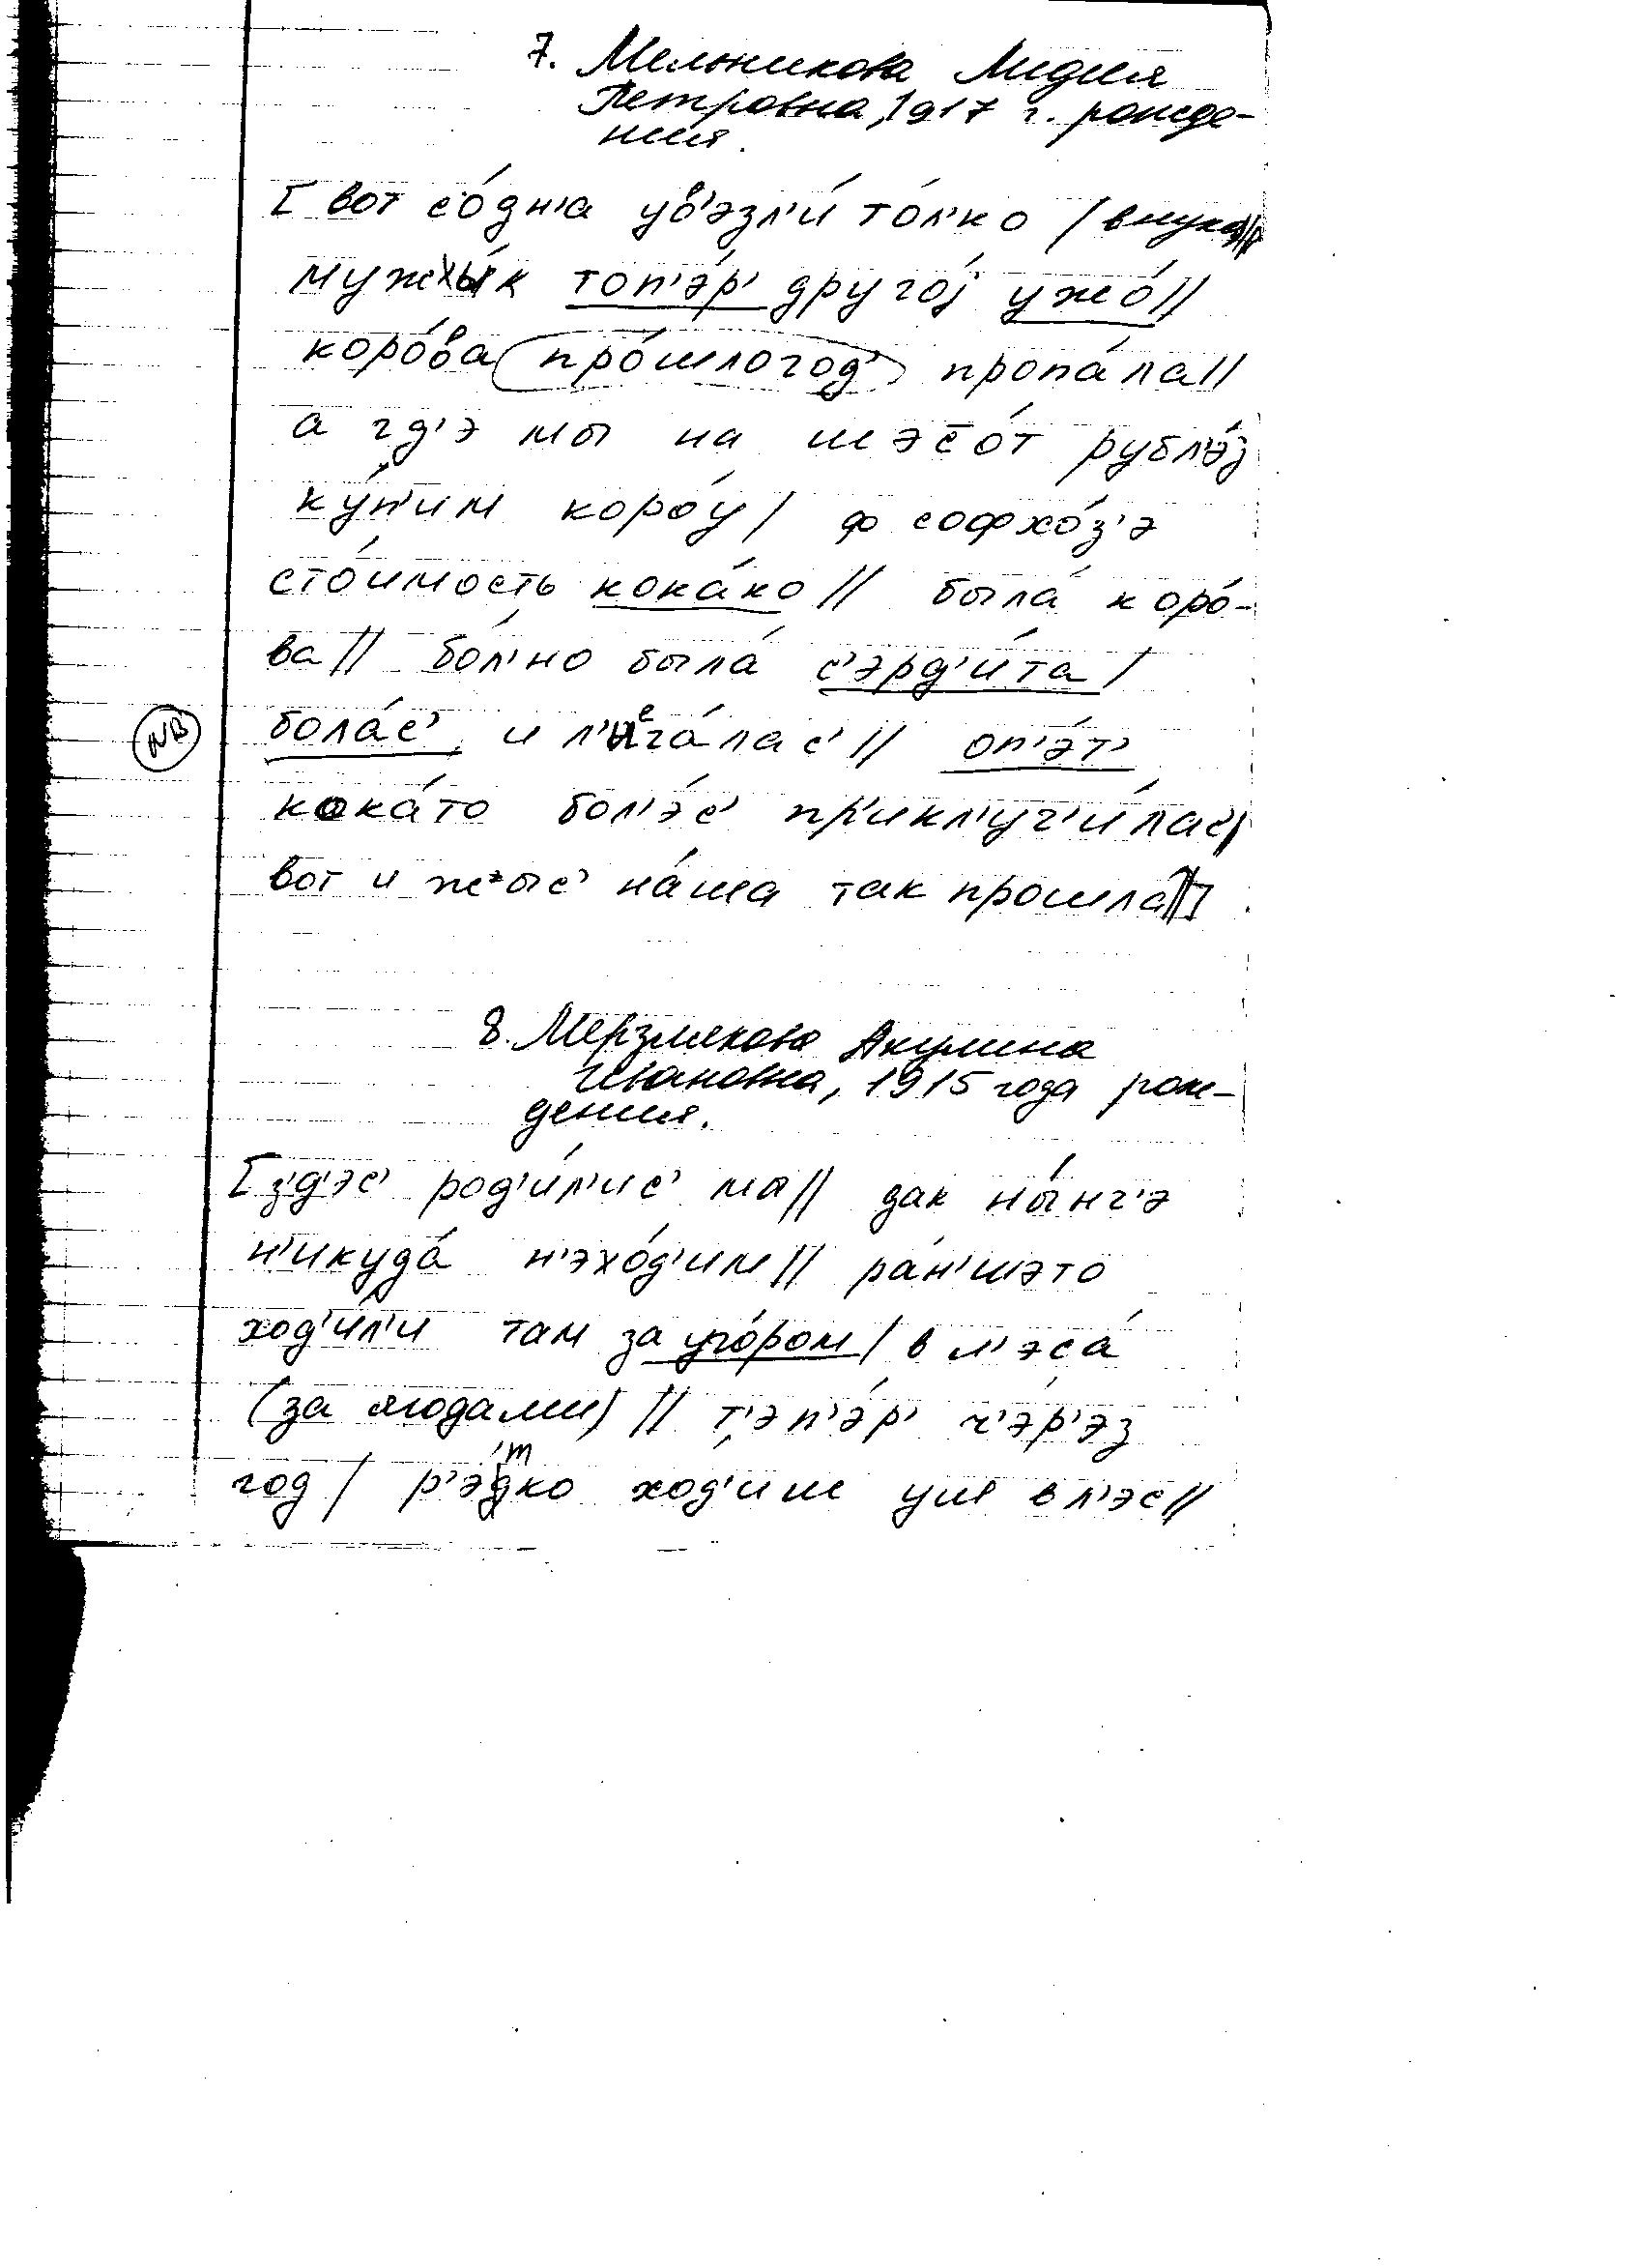 7. Мельникова Лидия
Петровна, 1917 г. рожде-
ния.
[ вот со́дн'а ув'эзл'и́ то́л'ко / внука //
мужы́к топ'э́р' друго́j ужо́ //
коро́ва про́шлогод' пропа́ла //
а гд'э мы на шэс̄о́т рубл'э́j
ку́п'им коро́у / ф софхо́з'э
сто́имость кока́ко // была́ коро́-
ва // бо́л'но была́ с'эрд'и́та /
NB бола́с' и л'ега́лас' // оп'э́т'
кока́то бол'э́с' пр'икл'уч'и́лас' /
вот и жыс' на́ша так прошла́ // ]
8. Мерзлякова Акулина
Ивановна, 1915 года рож-
дения.
[ з'д'эс' род'и́л'ис' мы // дак ны́нч'э
н'икуда́ н'эхо́д'им // ра́н'шэто
ход'и́л'и там за уго́ром / в л'эса́
(за ягодами) // т'эп'э́р' ч'э́р'эз
год / р'э́тко хо́д'иш уш в л'эс //